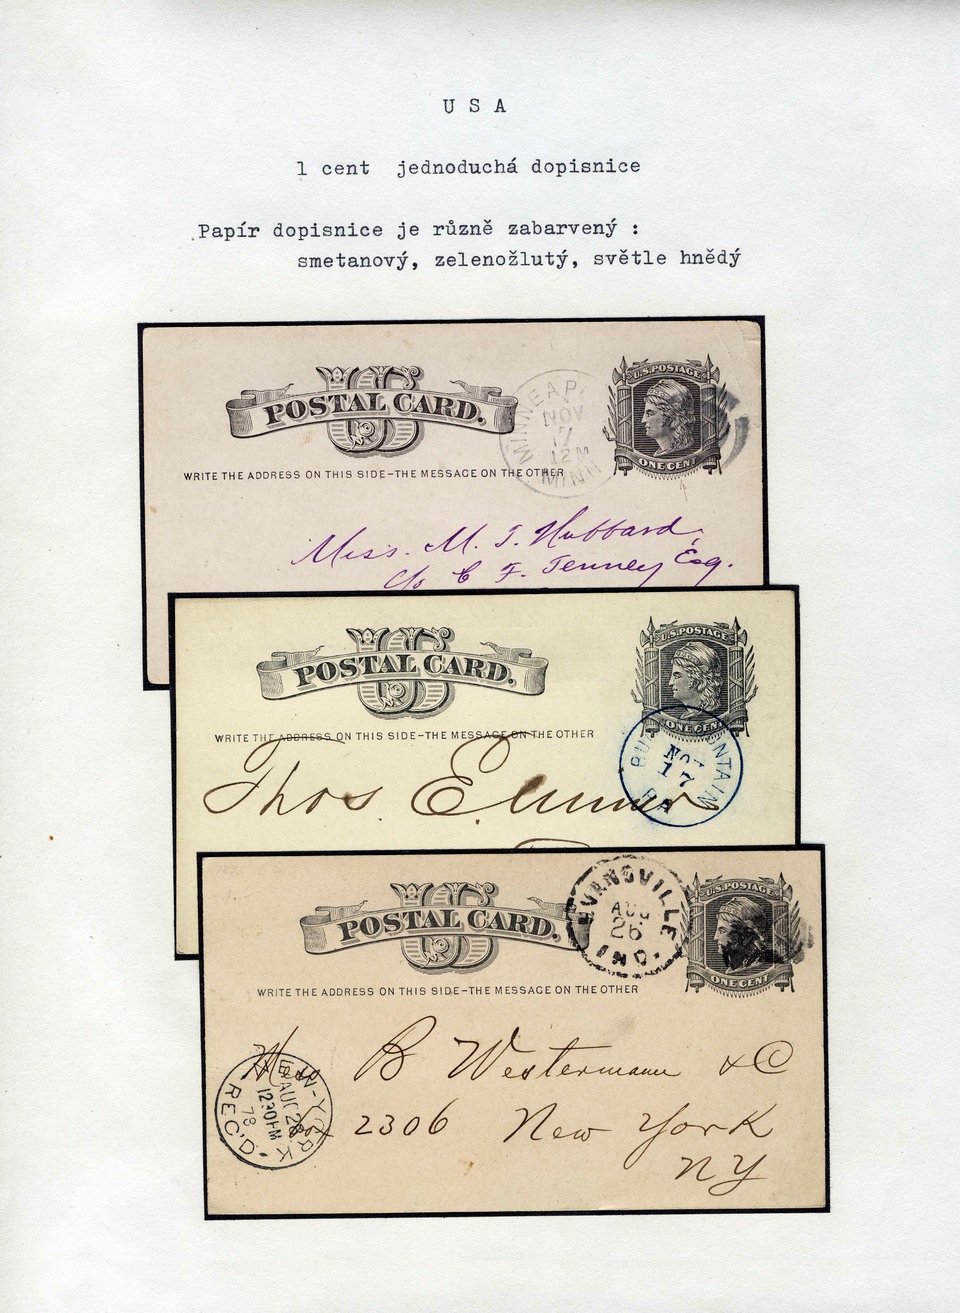 U S A
1 cent jednoduchá dopisnice
Papír dopisnice je různě zabarvený :
smetanový, zelenožlutý, světle hnědý
POSTAL CARD.
U.S. POSTAGE
ONE CENT
MINNEAP
NOV
17
12 M
MINN
WRITE THE ADDRESS ON THIS SIDE-THE MESSAGE ON THE OTHER
Miss. M. T. Hubbard,
c/o C F. Tenney Esq.
POSTAL CARD.
U.S. POSTAGE
ONE CENT
WRITE THE ADDRESS ON THIS SIDE-THE MESSAGE ON THE OTHER
NOV
17
PA
Thos.
POSTAL CARD.
U.S. POSTAGE
ONE CENT
EVANSVILLE
AUG
26
IND.
WRITE THE ADDRESS ON THIS SIDE-THE MESSAGE ON THE OTHER
Mess B Westermann & Co
2306 New York
NY
NEW-YORK
AUG 28
1230PM
78
REC'D.